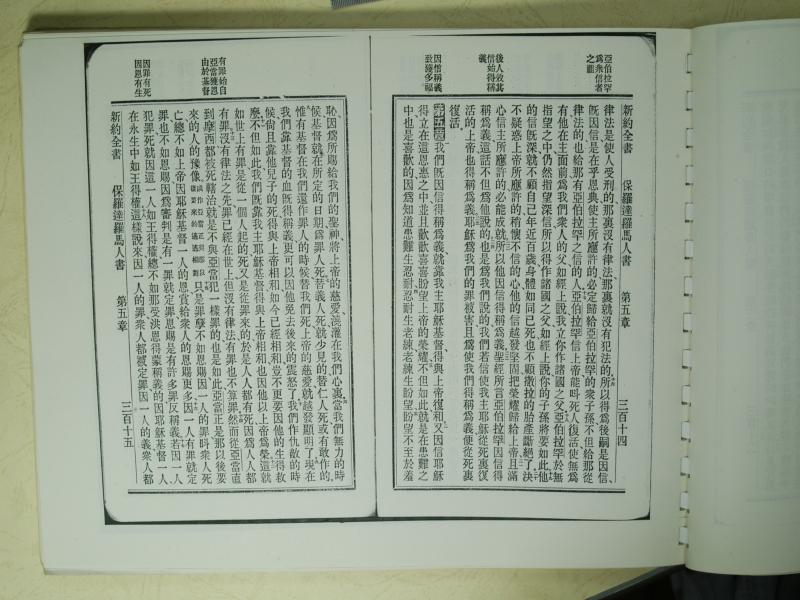 亞伯拉罕
爲衆信者
之祖
後人效其
信始得稱
義
因信稱義
致獲多福
新約全書 保羅達羅馬人書 第五章 三百十四
律法是使人受刑的那裏沒有律法那裏就沒有犯法的所以得爲後嗣是因信
旣因信是在乎恩典使主所應許的必定歸給亞伯拉罕的衆子孫不但給那從
律法的也給那有亞伯拉罕之信的人亞伯拉罕信上帝能呌死人復活使無爲
有他在主面前爲我們衆人的父如經上說我立你作諸國之父亞伯拉罕於無
指望之中仍然指望深信所以得作諸國之父如經上說你的子孫將要如此他
的信旣深就不顧自己年近百歲身體如同已死也不顧撒拉的胎產斷絕了決
不疑惑上帝所應許的稍懷不信的心他的信越發堅固把榮耀歸給上帝且滿
心信主所應許的必能成就所以他因信得稱爲義聖經所言亞伯拉罕因信得
稱爲義這話不但爲他說的也是爲我們說的我們若信使我主耶穌從死裏復
活的上帝也得稱爲義耶穌爲我們的罪被害且爲使我們得稱爲義便從死裏
復活
第五章 我們旣因信得稱爲義就靠我主耶穌基督得與上帝復和又因信耶穌
得立在這恩惠之中並且歡歡喜喜盼望上帝的榮耀不但如此就是在患難之
中也是喜歡的因爲知道患難生忍耐忍耐生老練老練生盼望盼望不至於羞
有罪始自
亞當獲恩
由於基督
因罪有死
因恩有生
恥因爲所賜給我們的聖神將上帝的慈愛澆灌在我們心裏當我們無力的時
候基督就在所定的日期爲罪人死替義人死就少見的替仁人死或有敢作的
惟有基督在我們還作罪人的時候替我們死上帝的慈愛就越發顯明了現在
我們靠基督的血旣得稱義更可以因他免去後來的震怒了我們作仇敵的時
候尙且靠他兒子的死得與上帝相和如今已經相和豈不更要因他的生得救
麼不但如此我們旣靠我主耶穌基督得與上帝相和也因他以上帝爲榮這就
如世上有罪是從一個人起的死又是從罪來的於是人人都有死因爲人人都
有罪沒有律法之先罪已經在世上但沒有律法有罪也不算罪然而從亞當直
到摩西都被死轄治就是不與亞當犯一樣罪的也是如此亞當正是那以後要
來的人的豫像 只是罪孽不如恩賜因一人的罪呌衆人死
亡總不如上帝因耶穌基督一人的恩賞給衆人的恩賜更多因一人有罪就定
罪也不如恩賜因爲審判是有一罪就定罪恩賜是有許多罪反稱義若因一人
犯罪死就因這一人如王得權總不如那受洪恩得蒙稱義的因耶穌基督一人
在永生中如王得權這樣說來因一人的罪衆人都被定罪因一人的義衆人都
新約全書 保羅達羅馬人書 第五章 三百十五